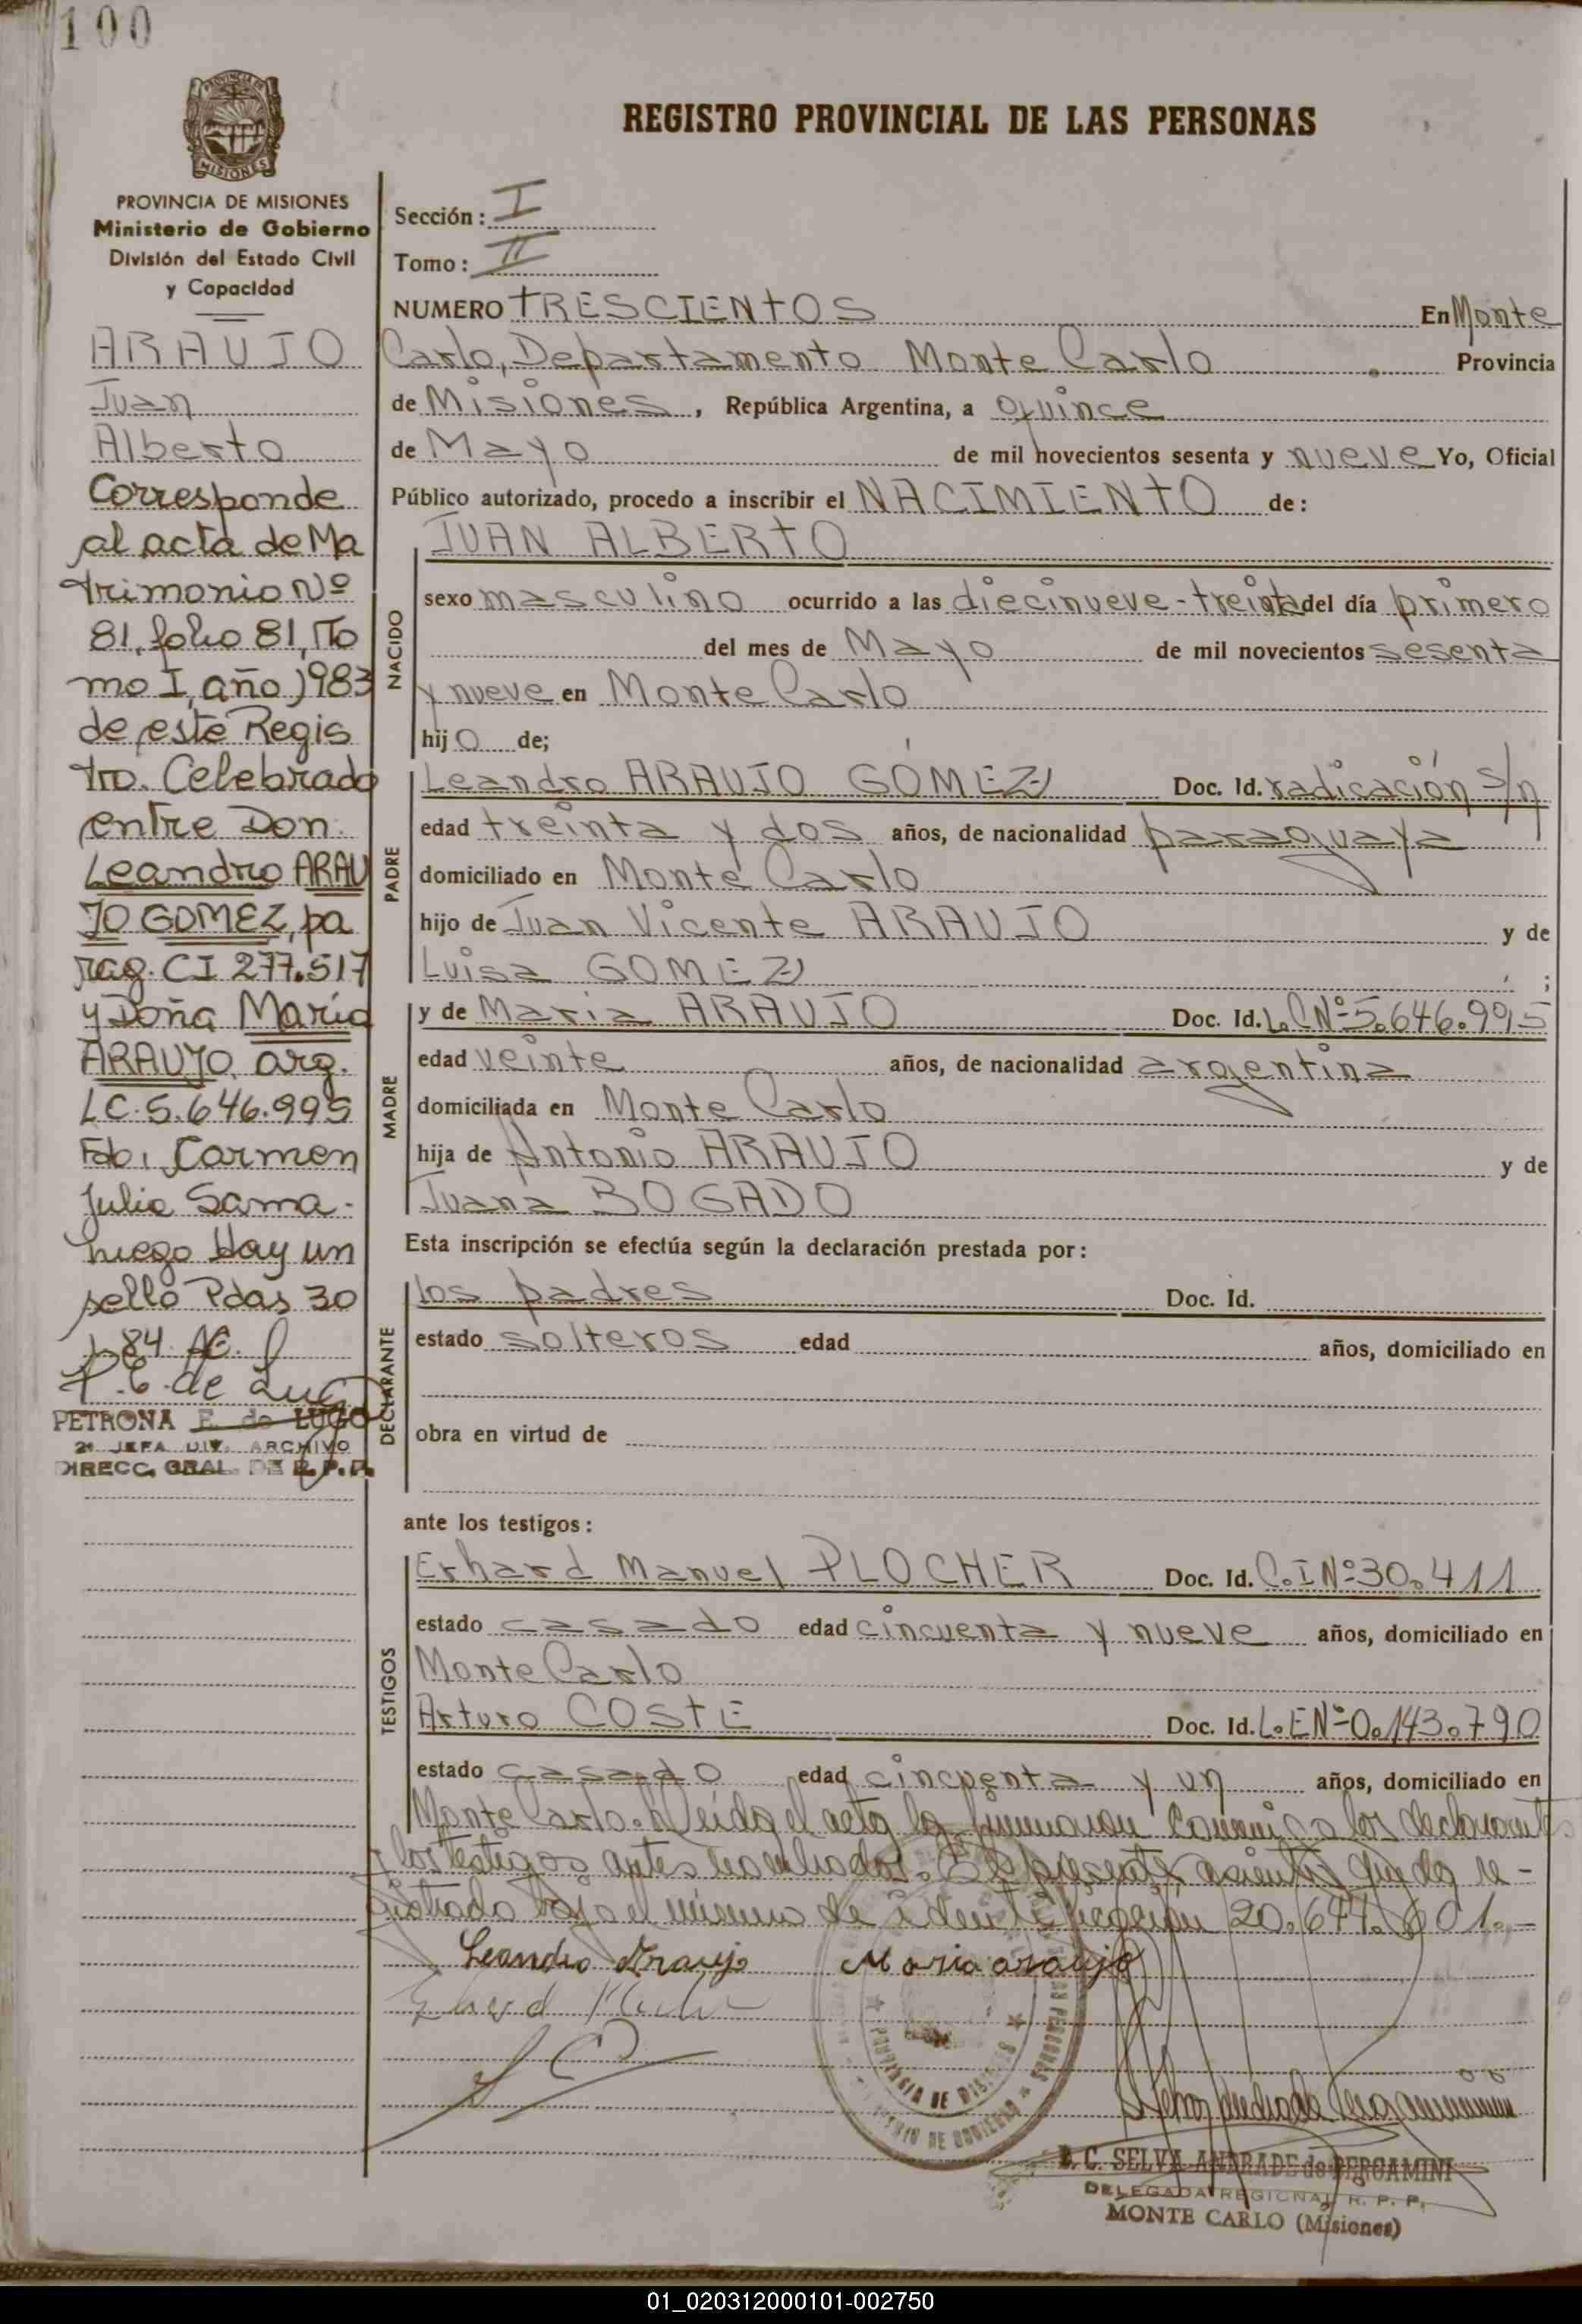 100
PROVINCIA DE MISIONES
Ministerio de Gobierno
División del Estado Civil
y Capacidad
ARAUJO
Juan
Alberto
Corresponde
al acta de Ma
trimonio Nº
81, folio 81, To
mo I, año 1983
de este Regis
tro. Celebrado
entre Don
Leandro ARAU
JO GOMEZ, pa
rag. CI 277.517
y Doña María
ARAUJO, arg.
LC. 5.646.995
Fdo. Carmen
Julia Sama-
niego Hay un
sello Pdas 30
84
P. E. de Lugo
PETRONA E. de LUGO
2ª JEFA DIV. ARCHIVO
DIRECC. GRAL. DE R. P. P.
REGISTRO PROVINCIAL DE LAS PERSONAS
Sección: I
Tomo: II
NUMERO TRESCIENTOS En Monte
Carlo, Departamento Monte Carlo Provincia
de Misiones, República Argentina, a quince
de Mayo de mil novecientos sesenta y nueve Yo, Oficial
Público autorizado, procedo a inscribir el NACIMIENTO de:
JUAN ALBERTO
NACIDO
sexo masculino ocurrido a las diecinueve-treinta del día primero
del mes de Mayo de mil novecientos sesenta
y nueve en Monte Carlo
hijo de;
PADRE
Leandro ARAUJO GÓMEZ Doc. Id. radicación s/n
edad treinta y dos años, de nacionalidad paraguaya
domiciliado en Monte Carlo
hijo de Juan Vicente ARAUJO y de
Luisa GOMEZ ;
MADRE
y de Maria ARAUJO Doc. Id. L.C Nº 5.646.995
edad veinte años, de nacionalidad argentina
domiciliada en Monte Carlo
hija de Antonio ARAUJO y de
Juana BOGADO
Esta inscripción se efectúa según la declaración prestada por:
DECLARANTE
los padres Doc. Id.
estado solteros edad años, domiciliado en
obra en virtud de
ante los testigos:
TESTIGOS
Erhard Manuel PLOCHER Doc. Id. C.I Nº 30.411
estado casado edad cincuenta y nueve años, domiciliado en
Monte Carlo
Arturo COSTE Doc. Id. L.E Nº 0.143.790
estado casado edad cincuenta y un años, domiciliado en
Monte Carlo. Leída el acta la firmaron conmigo los declarantes
y los testigos antes nombrados. El presente asiento queda re-
gistrado bajo el número de identificación 20.647.601.-
Leandro Araujo Maria araujo
PROVINCIA DE MISIONES
MINISTERIO DE GOBIERNO
D. C. SELVA ANDRADE de BERGAMINI
DELEGADA REGIONAL R. P. P.
MONTE CARLO (Misiones)
01_020312000101-002750